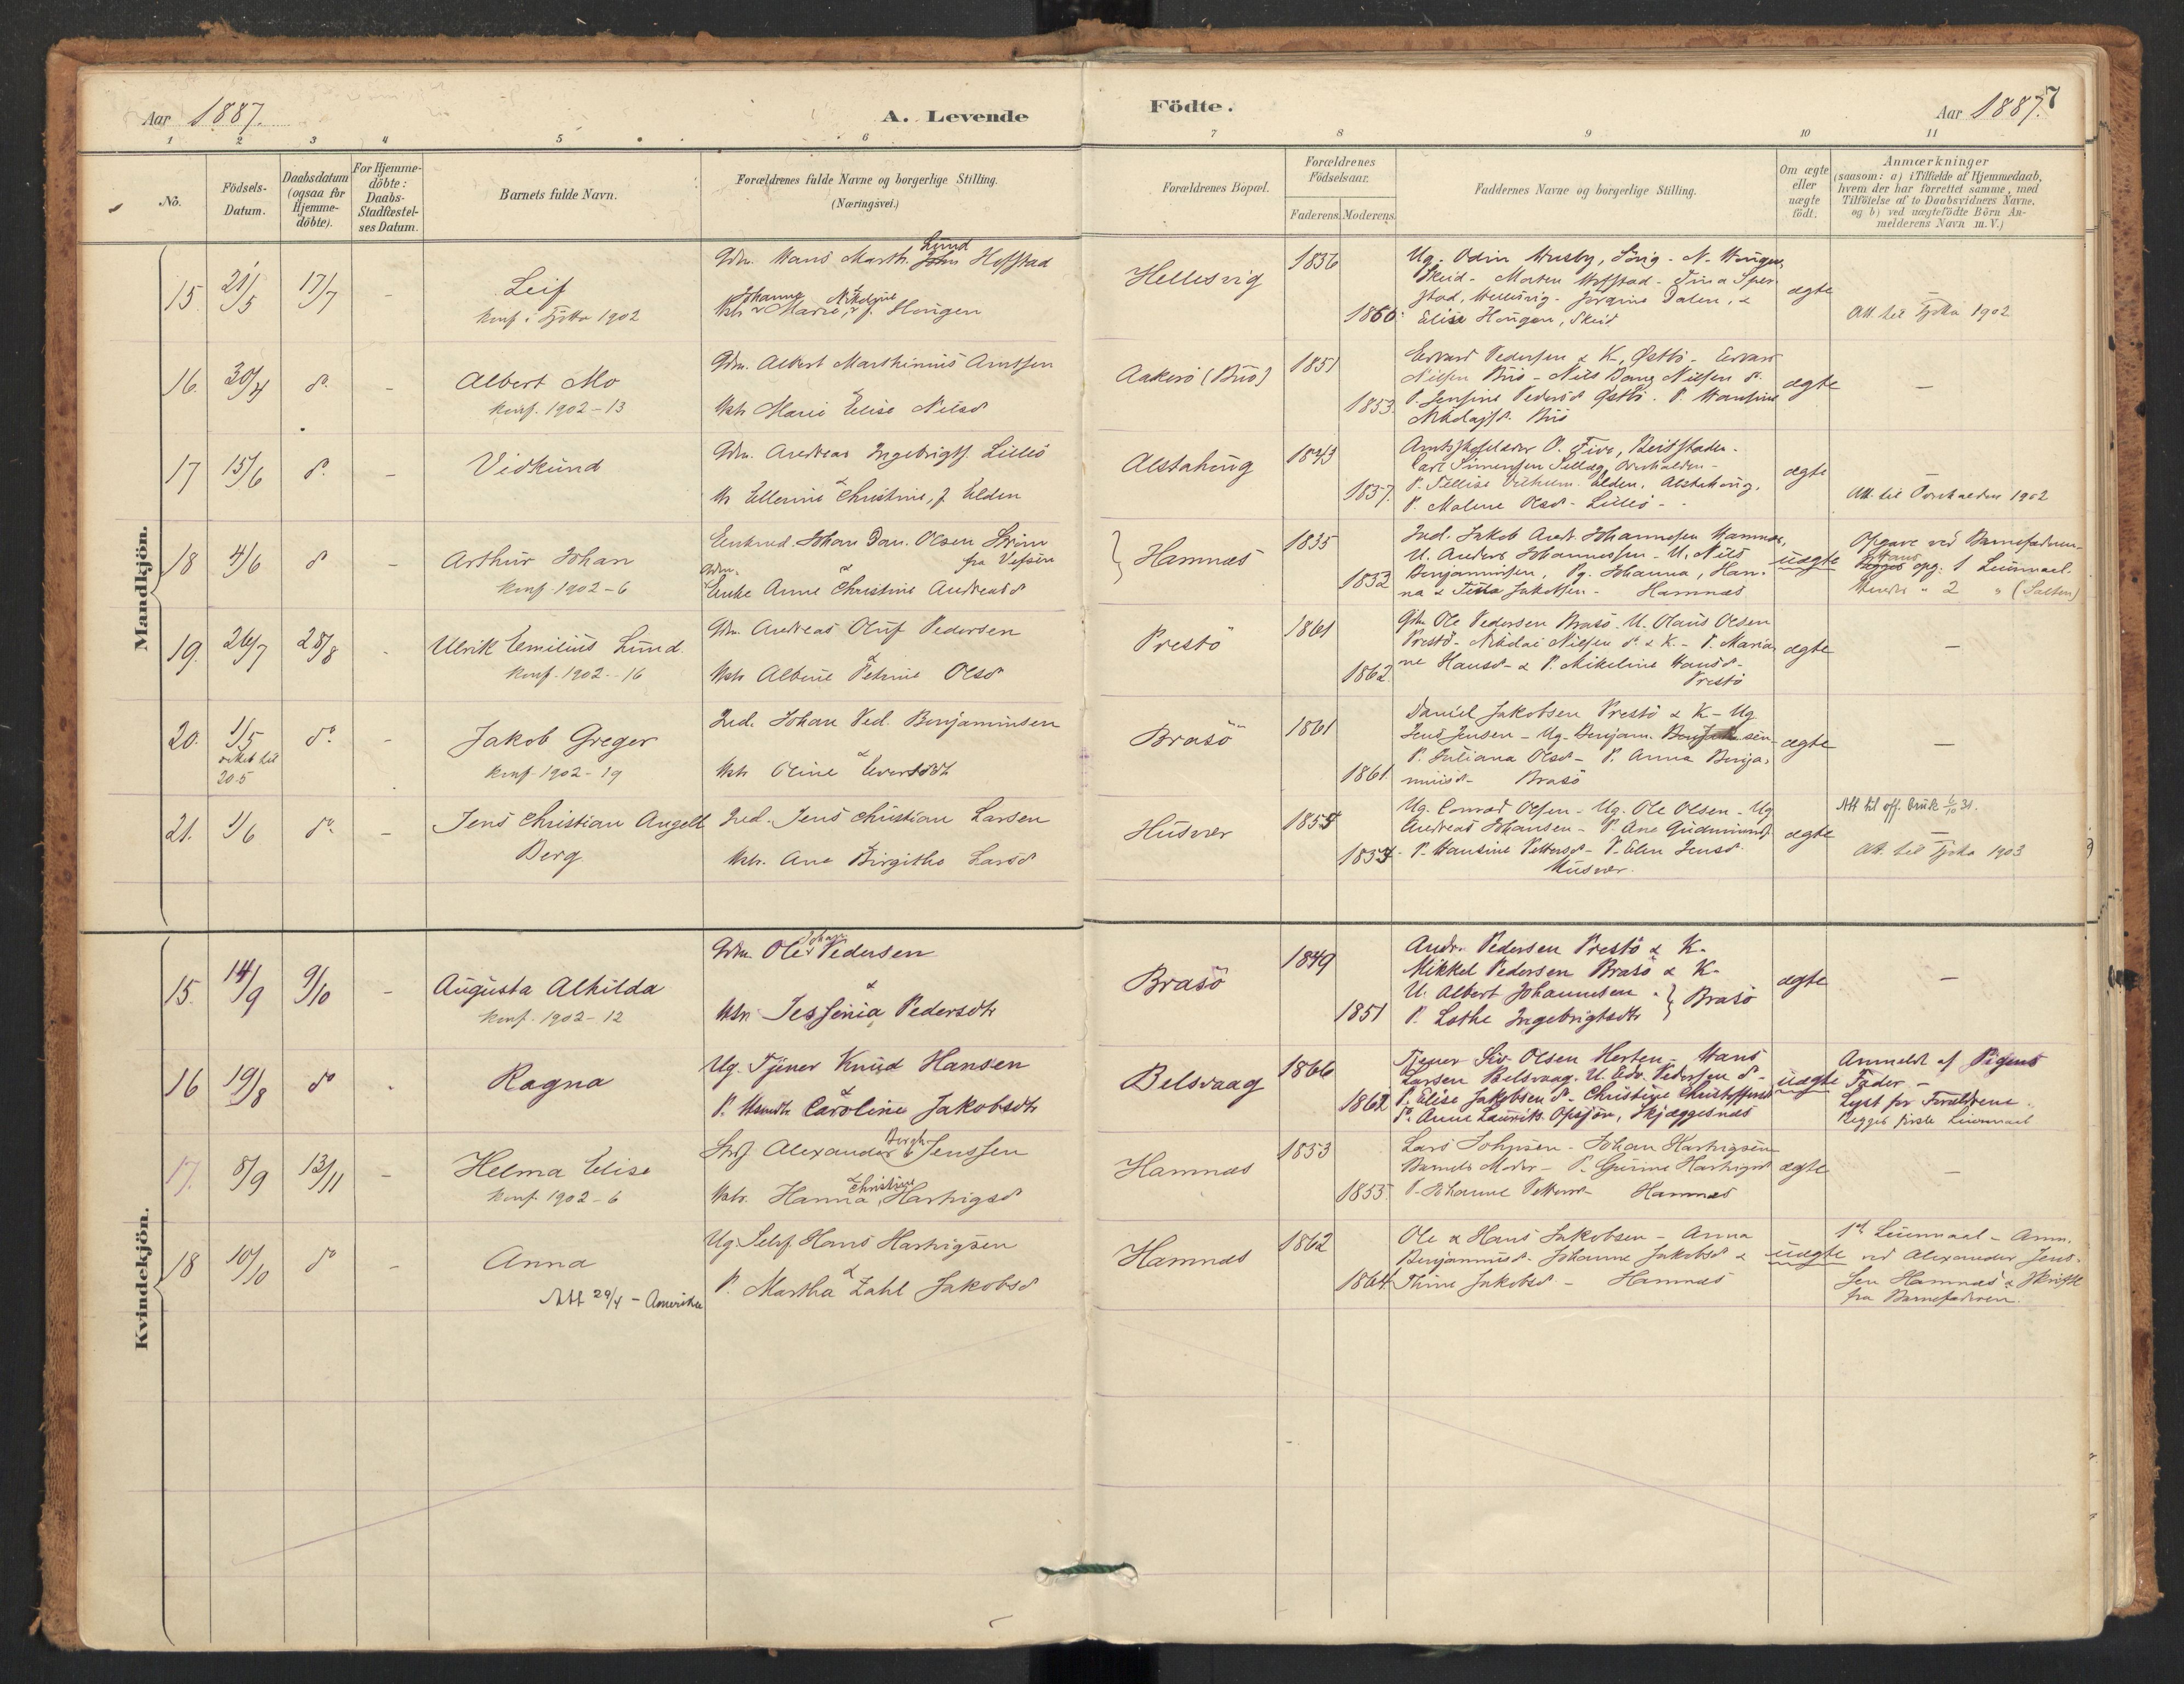 Aar 1887.
A. Levende
Födte.
Aar 1887.
7
1 2 3 4 5 6 7 8 9 10 11
No.
Födsels-
Datum.
Daabsdatum
(ogsaa for
Hjemme-
döbte).
For Hjemme-
döbte:
Daabs-
Stadfæstel-
ses Datum.
Barnets fulde Navn.
Forældrenes fulde Navne og borgerlige Stilling.
(Næringsvei.)
Forældrenes Bopæl.
Forældrenes
Födselsaar.
Faderens.
Moderens.
Faddernes Navne og borgerlige Stilling.
Om ægte
eller
uægte
födt.
Anmærkninger
(saasom: a) i Tilfælde af Hjemmedaab,
hvem der har forrettet samme, med
Tilföielse af to Daabsvidners Navne.
og b) ved uægtefödte Börn An-
melderens Navn m. V.)
Mandkjön.
15 21/5 17/7 -
Leif
Konf. i Tjötta 1902
Gdm. Hans Marth. Lund Hofstad
Johanna Nikoline
Marie, f. Haugen
Hellesvig
1836
1860
Ug. Odin Husby, Sörig - N. Haugen,
Skeid - Morten Hofstad - Tina Sper-
stad, Hellesvig - Jørgine Dalen, &
Elise Haugen, Skeid
ægte
-
Att. til Tjötta 1902
16. 30/4 do. -
Albert Mo
Konf. 1902-13
Gdm. Albert Marthinius Arntsen
&
Hstr Marie Elise Nilsd
Aakerö (Buö)
1851
1853
Edvard Pedersen & K., Østbö - Edvard
Nilsen Buö - Nils Dang Nilsen do.
P. Jensine Pedersd Østbö. P. Hansine
Nikolajsd. Buö
ægte
-
17 15/6 do. -
Vidkund
Gdm. Andreas Ingebrigts. Lilleö
&
Ellerine Christine, f. Elden
Alstahaug
1843
1857
O. Five, Beitstaden -
Carl Simensen Overhalden -
Elden, Alstahaug,
P. Malene Olsd - Lilleö -
ægte
-
Att. til Overhalden 1902
18 4/6 do -
Arthur Johan
Konf. 1902-6
Enkemd. Johan Dan. Olsen
fra Vefsen
&
Enke Anne Christine Andreasd
Hamnæs
1835
1832
Ind. Jakob Andr. Johannesen Hamnæs,
U. Anders Johannessen - U. Nils
Benjaminsen, Pg. Johanna, Han-
na & Tina Jakobsen - Hamnæs
uægte
Opgave ved Barnefaderen
Hans opg: 1 Leiermaal.
" 2 " (Salten)
19. 26/7 28/8 -
Ulrik Emilius Lund
Konf. 1902-16
Gdm. Andreas Oluf Pedersen
&
Hstr Albine Petrine Olsd
Prestö
1861
1862
Gdm. Ole Pedersen Brasö. U. Olaus Olsen
Prestö - Nikolai Nilsen do & K. - P. Maria-
ne Hansd - & P. Mikeline Hansd -
Prestö
ægte
-
20. 1/5
20.5
do. -
Jakob Greger
Konf. 1902-19
Ind. Johan Ped. Benjaminsen
&
Hstr Oline Evertsdt
Brasö
1861
1861
Daniel Jakobsen Prestö & K - Ug
Jens Jensen - Ug. Benjam.
P. Juliana Olsd - P. Anna Benja-
minsd - Brasö
ægte
-
21. 1/6 do. -
Jens Christian Angell
Berg
Ind. Jens Christian Larsen
&
Hstr. Ane Birgithe Larsd
Husvær
1855
1854
Ug. Conrad Olsen - Ug. Ole Olsen - Ug
Andreas Johansen - P. Ane Gudmunds
P. Hansine Pettersd - P. Elen Jensd
Husvær.
ægte
Att til off. bruk 6/10 31.
-
Att. til Tjötta 1903
Kvindekjön.
15. 14/9 9/10 -
Augusta Alhilda
Konf. 1902-12
Gdm Ole Johan Pedersen
&
Hstr Jessenia Pedersdtr
Brasö
1849
1851
Andr. Pedersen Prestö & K.
Mikkel Pedersen Brasö & K.
U. Albert Johannesen
P. Lothe Ingebrigtsdtr
Brasö
ægte
-
16 19/8 do -
Ragna
Ug. Tjener Knud Hansen
&
P. Caroline Jakobsdtr
Belsvaag
1866
1862
Tjener Siv. Olsen Herten - Hans
Larsen Belsvaag. U. Edv. Pedersen do -
P. Elise Jakobsen do - Christine Christoffersd
P. Anne Laurits. Opsjön, Skjæggesnæs
uægte
Anmeldt af Pigens
Fader. -
Lyst for Forældrene.
Begges förste Leiermaal
17. 8/9 13/11 -
Helma Elise
Konf. 1902-6
Alexander Bergh Jenssen
& Christine
Hstr. Hanna Hartvigsd
Hamnæs
1853
1855
Lars Johnsen - Johan Hartvigsen
Barnets Moder - P. Gurine Hartvigsd
P. Johanne Pettersd - Hamnæs
ægte
-
18 10/10 do -
Anna
Att 29/4 - Amerika
Ug. Selvf. Hans Hartvigsen
&
P. Martha Zahl Jakobsd
Hamnæs
1862
1864
Ole & Hans Jakobsen - Anna
Benjaminsd - Johanne Jakobsd &
Thine Jakobsd - Hamnæs
uægte
1st Leiermaal - Anm.
ved Alexander Jens-
sen Hamnæs & Skriftl
fra Barnefaderen.